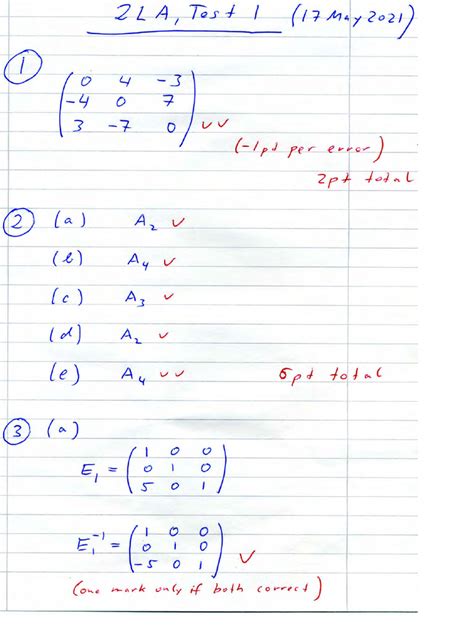 2LA, Test 1 (17 May 2021)
1
( 0 4 -3 )
( -4 0 7 )
( 3 -7 0 ) ✓✓
(-1pt per error)
2pt total
2 (a) A₂ ✓
(b) A₄ ✓
(c) A₃ ✓
(d) A₂ ✓
(e) A₄ ✓✓ 6pt total
3 (a)
( 1 0 0 )
E₁ = ( 0 1 0 )
( 5 0 1 )
( 1 0 0 )
E₁⁻¹ = ( 0 1 0 )
( -5 0 1 ) ✓
(one mark only if both correct)